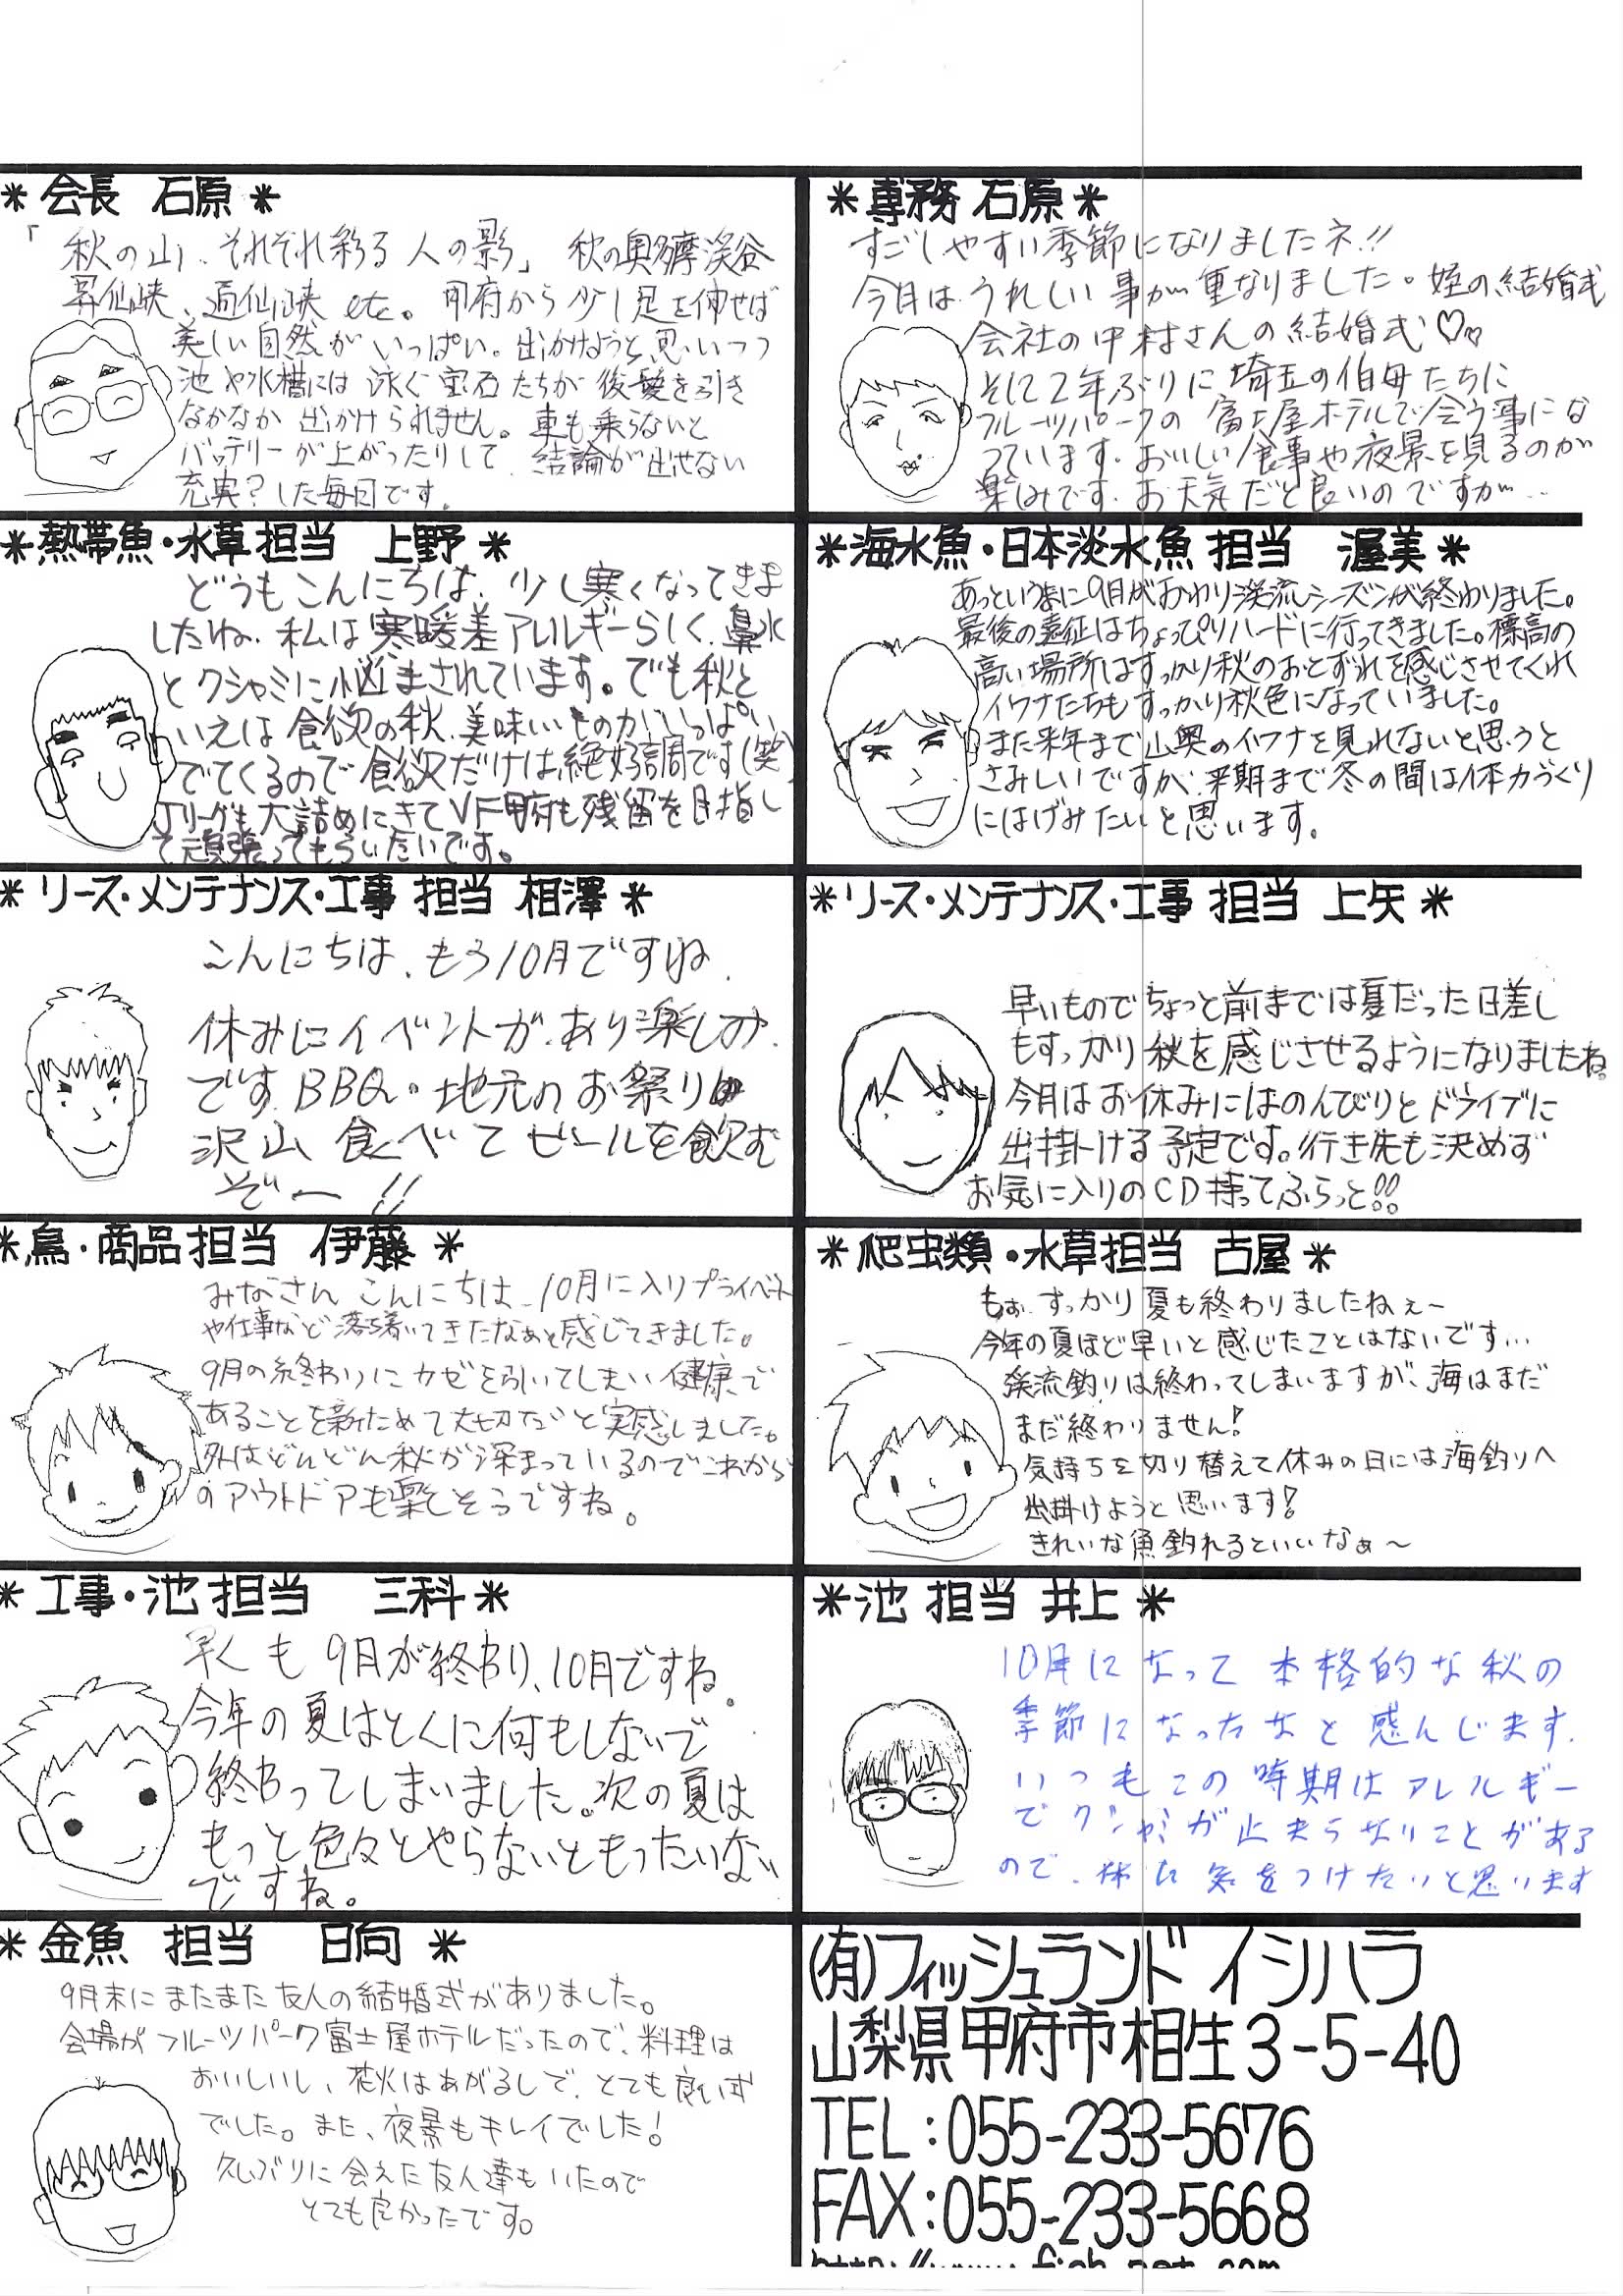 ＊会長 石原＊
「秋の山、それぞれ彩る人の影」 秋の奥多摩渓谷
昇仙峡、 etc。甲府から少し足を伸せば
美しい自然がいっぱい。出かけようと思いつつ
池や水槽には泳ぐ宝石たちが後髪を引き
なかなか出かけられません。車も乗らないと
バッテリーが上がったりして、結論が出せない
充実？した毎日です。
＊専務 石原＊
すごしやすい季節になりましたネ!!
今月は、うれしい事が重なりました。姪の結婚式
会社の中村さんの結婚式♡♡
そして2年ぶりに埼玉の伯母たちに
フルーツパークの富士屋ホテルで会う事にな
っています。おいしい食事や夜景を見るのが
楽しみです。お天気だと良いのですが…
＊熱帯魚・水草担当 上野＊
どうもこんにちは、少し寒くなってきま
したね。私は寒暖差アレルギーらしく、鼻水
とクシャミに悩まされています。でも秋と
いえば食欲の秋、美味いものがいっぱい
でてくるので食欲だけは絶好調です(笑)
Jリーグも大詰めにきてVF甲府も残留を目指し
て頑張ってもらいたいです。
＊海水魚・日本淡水魚 担当 渥美＊
あっというまに9月がおわり渓流シーズンが終わりました。
最後の遠征はちょっぴりハードに行ってきました。標高の
高い場所はすっかり秋のおとずれを感じさせてくれ
イワナたちもすっかり秋色になっていました。
また来年まで山奥のイワナを見れないと思うと
さみしいですが、来期まで冬の間は体力づくり
にはげみたいと思います。
＊リース・メンテナンス・工事 担当 相澤＊
こんにちは、もう10月ですね。
休みにイベントがあり楽しみ
です。BBQ・地元のお祭り
沢山食べてビールを飲む
ぞー!!
＊リース・メンテナンス・工事 担当 上矢＊
早いものでちょっと前までは夏だった日差し
もすっかり秋を感じさせるようになりましたね。
今月はお休みにはのんびりとドライブに
出掛ける予定です。行き先も決めず
お気に入りのCD持ってふらっと!!
＊鳥・商品担当 伊藤＊
みなさんこんにちは、10月に入りプライベート
や仕事など落ち着いてきたなぁと感じてきました。
9月の終わりにカゼを引いてしまい健康で
あることを新ためて大切だと実感しました。
外はどんどん秋が深まっているのでこれから
のアウトドアも楽しそうですね。
＊爬虫類・水草担当 古屋＊
もぉすっかり夏も終わりましたねぇ〜
今年の夏ほど早いと感じたことはないです…
渓流釣りは終わってしまいますが、海はまだ
まだ終わりません!
気持ちを切り替えて休みの日には海釣りへ
出掛けようと思います!
きれいな魚釣れるといいなぁ〜
＊工事・池担当 三科＊
早くも9月が終わり、10月ですね。
今年の夏はとくに何もしないで
終わってしまいました。次の夏は
もっと色々とやらないともったいない
ですね。
＊池 担当 井上＊
10月になって本格的な秋の
季節になったなと感んじます。
いつもこの時期はアレルギー
でクシャミが止まらないことがある
ので、体に気をつけたいと思います
＊金魚 担当 日向＊
9月末にまたまた友人の結婚式がありました。
会場がフルーツパーク富士屋ホテルだったので、料理は
おいしいし、花火はあがるしで、とても良い式
でした。また、夜景もキレイでした!
久しぶりに会えた友人達もいたので
とても良かったです。
(有)フィッシュランド イシハラ
山梨県甲府市相生3-5-40
TEL:055-233-5676
FAX:055-233-5668